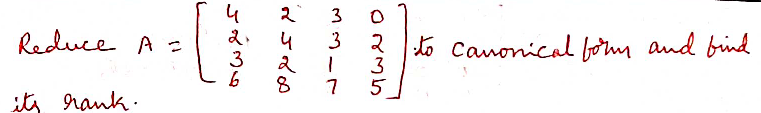 Reduce A = [ 4 2 3 0
2 4 3 2
3 2 1 3
6 8 7 5 ] to canonical form and find
its rank.